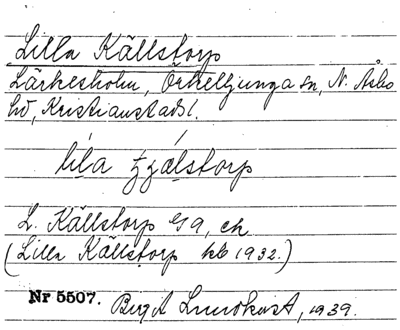 Lilla Källstorp
Lärkesholm, Örkelljunga sn, N. Åsbo
hd, Kristianstads l.
lila tjälstorp
L. Källstorp G9, ek
(Lilla Källstorp kb 1932.)
Nr 5507. Bergit Lundkvist, 1939.